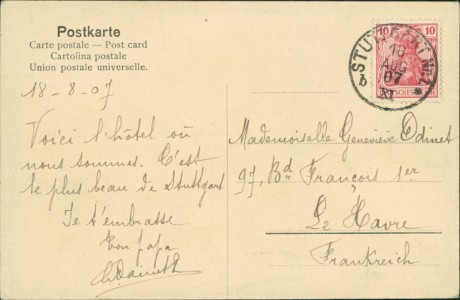 Postkarte
Carte postale — Post card
Cartolina postale
Union postale universelle.
18-8-07
Voici l'hôtel où
nous sommes. C'est
le plus beau de Stuttgart
Je t'embrasse
Ton papa
10 10
STUTTGART No 2
18
AUG
07
Mademoiselle Geneviève Odinet
97, Bd François 1er
Le Havre
Frankreich